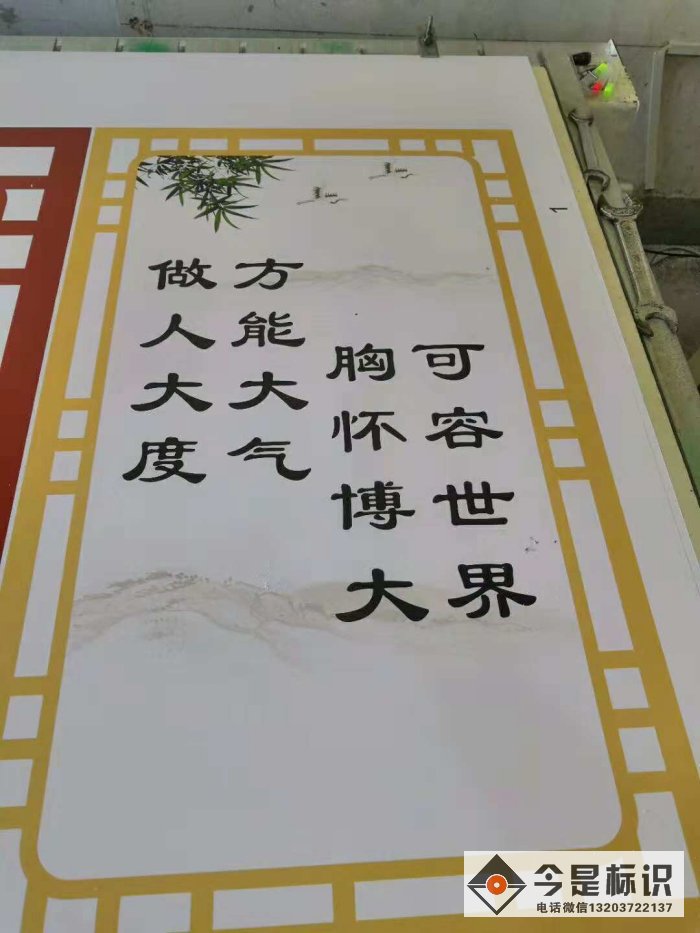 做人大度
方能大气
胸怀博大
可容世界
1
今是标识
电话微信13203722137